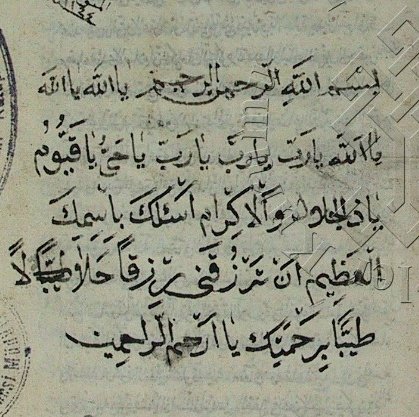 بسم الله الرحمن الرحيم يا الله يا الله
يا الله يا رب يا رب يا رب يا حي يا قيوم
يا ذا الجلال والاكرام اسئلك باسمك
العظيم ان ترزقني رزقا حلالا
طيبا برحمتك يا ارحم الراحمين